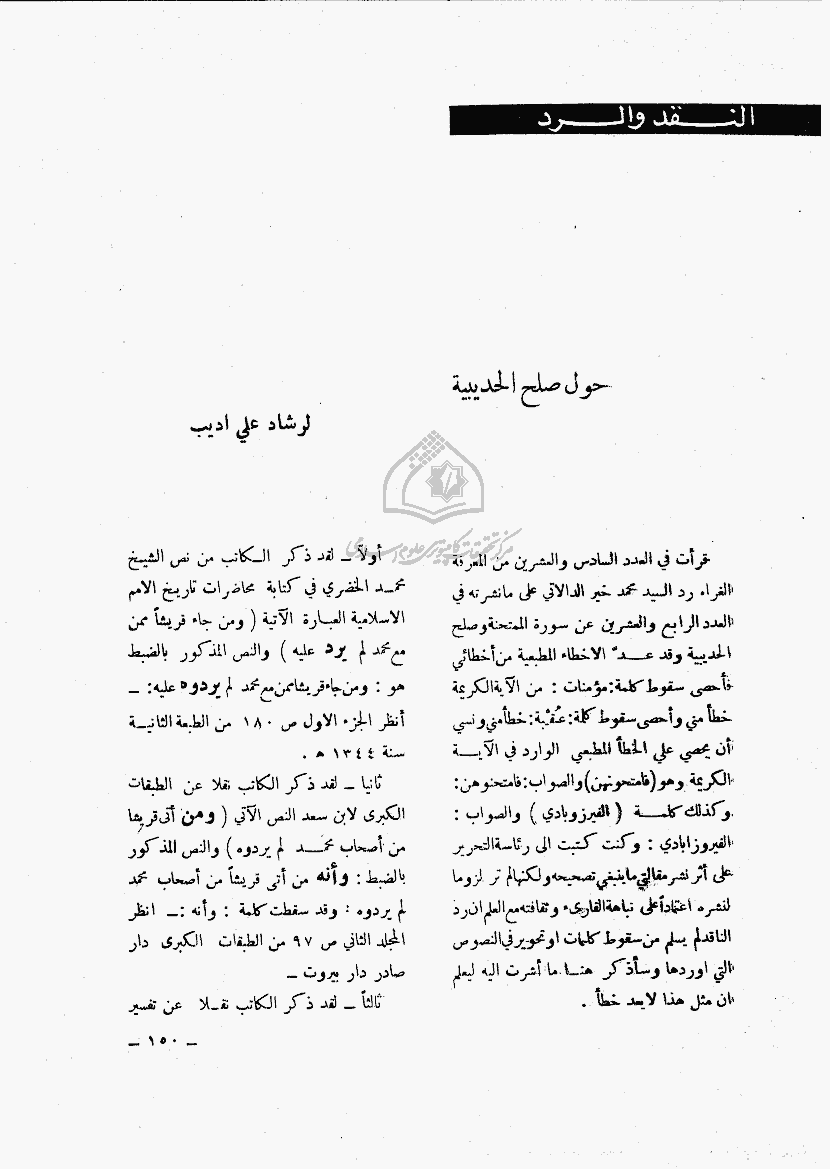 النـــقد والـــرد
حول صلح الحديبية
لرشاد علي اديب
مركز تحقيقات كامپيوتري علوم اسلامي
قرأت في العدد السادس والعشرين من المعرفة
الغراء رد السيد محمد خير الدالاتي على ما نشرته في
العدد الرابع والعشرين عن سورة الممتحنة وصلح
الحديبية وقد عـــدّ الاخطاء المطبعية من أخطائي
فأحصى سقوط كلمة: مؤمنات : من الآية الكريمة
خطأ مني وأحصى سقوط كلمة: عُقْبة: خطأ مني ونسي
أن يحصي علي الخطأ المطبعي الوارد في الآيـــة
الكريمة وهو (فامتحونهن) والصواب: فامتحنوهن:
وكذلك كلمـــة ( الفيرزوبادي ) والصواب :
الفيروزابادي : وكنت كتبت الى رئاسة التحرير
على أثر نشر مقالتي ما ينبغي تصحيحه ولكنها لم تر لزوما
لنشره اعتماداً على نباهة القارىء وثقافته مع العلم ان رد
الناقد لم يسلم من سقوط كلمات او تحوير في النصوص
التي اوردها وسأذكر هنـا ما أشرت اليه ليعلم
ان مثل هذا لا يعد خطأ .
أولاً ــ لقد ذكر الـكاتب من نص الشيخ
محمـد الخضري في كتابة محاضرات تاريخ الامم
الاسلامية العبـارة الآتية ( ومن جاء قريشاً ممن
مع محمد لم يرد عليه ) والنص المذكور بالضبط
هو : ومن جاء قريشا ممن مع محمد لم يردوه عليه: ــ
أنظر الجزء الاول ص ١٨٠ من الطبعة الثانيـة
سنة ١٣٤٤ ه .
ثانيا ــ لقد ذكر الكاتب نقلا عن الطبقات
الكبرى لابن سعد النص الآتي ( ومن أتى قريشا
من أصحاب محمـــد لم يردوه ) والنص المذكور
بالضبط : وأنه من أتى قريشاً من أصحاب محمد
لم يردوه : وقد سقطت كلمة : وأنه :ــ انظر
المجلد الثاني ص ٩٧ من الطبقات الكبرى دار
صادر دار بيروت ــ
ثالثاً ــ لقد ذكر الكاتب نقـلا عن تفسير
ــ ١٥٠ ــ